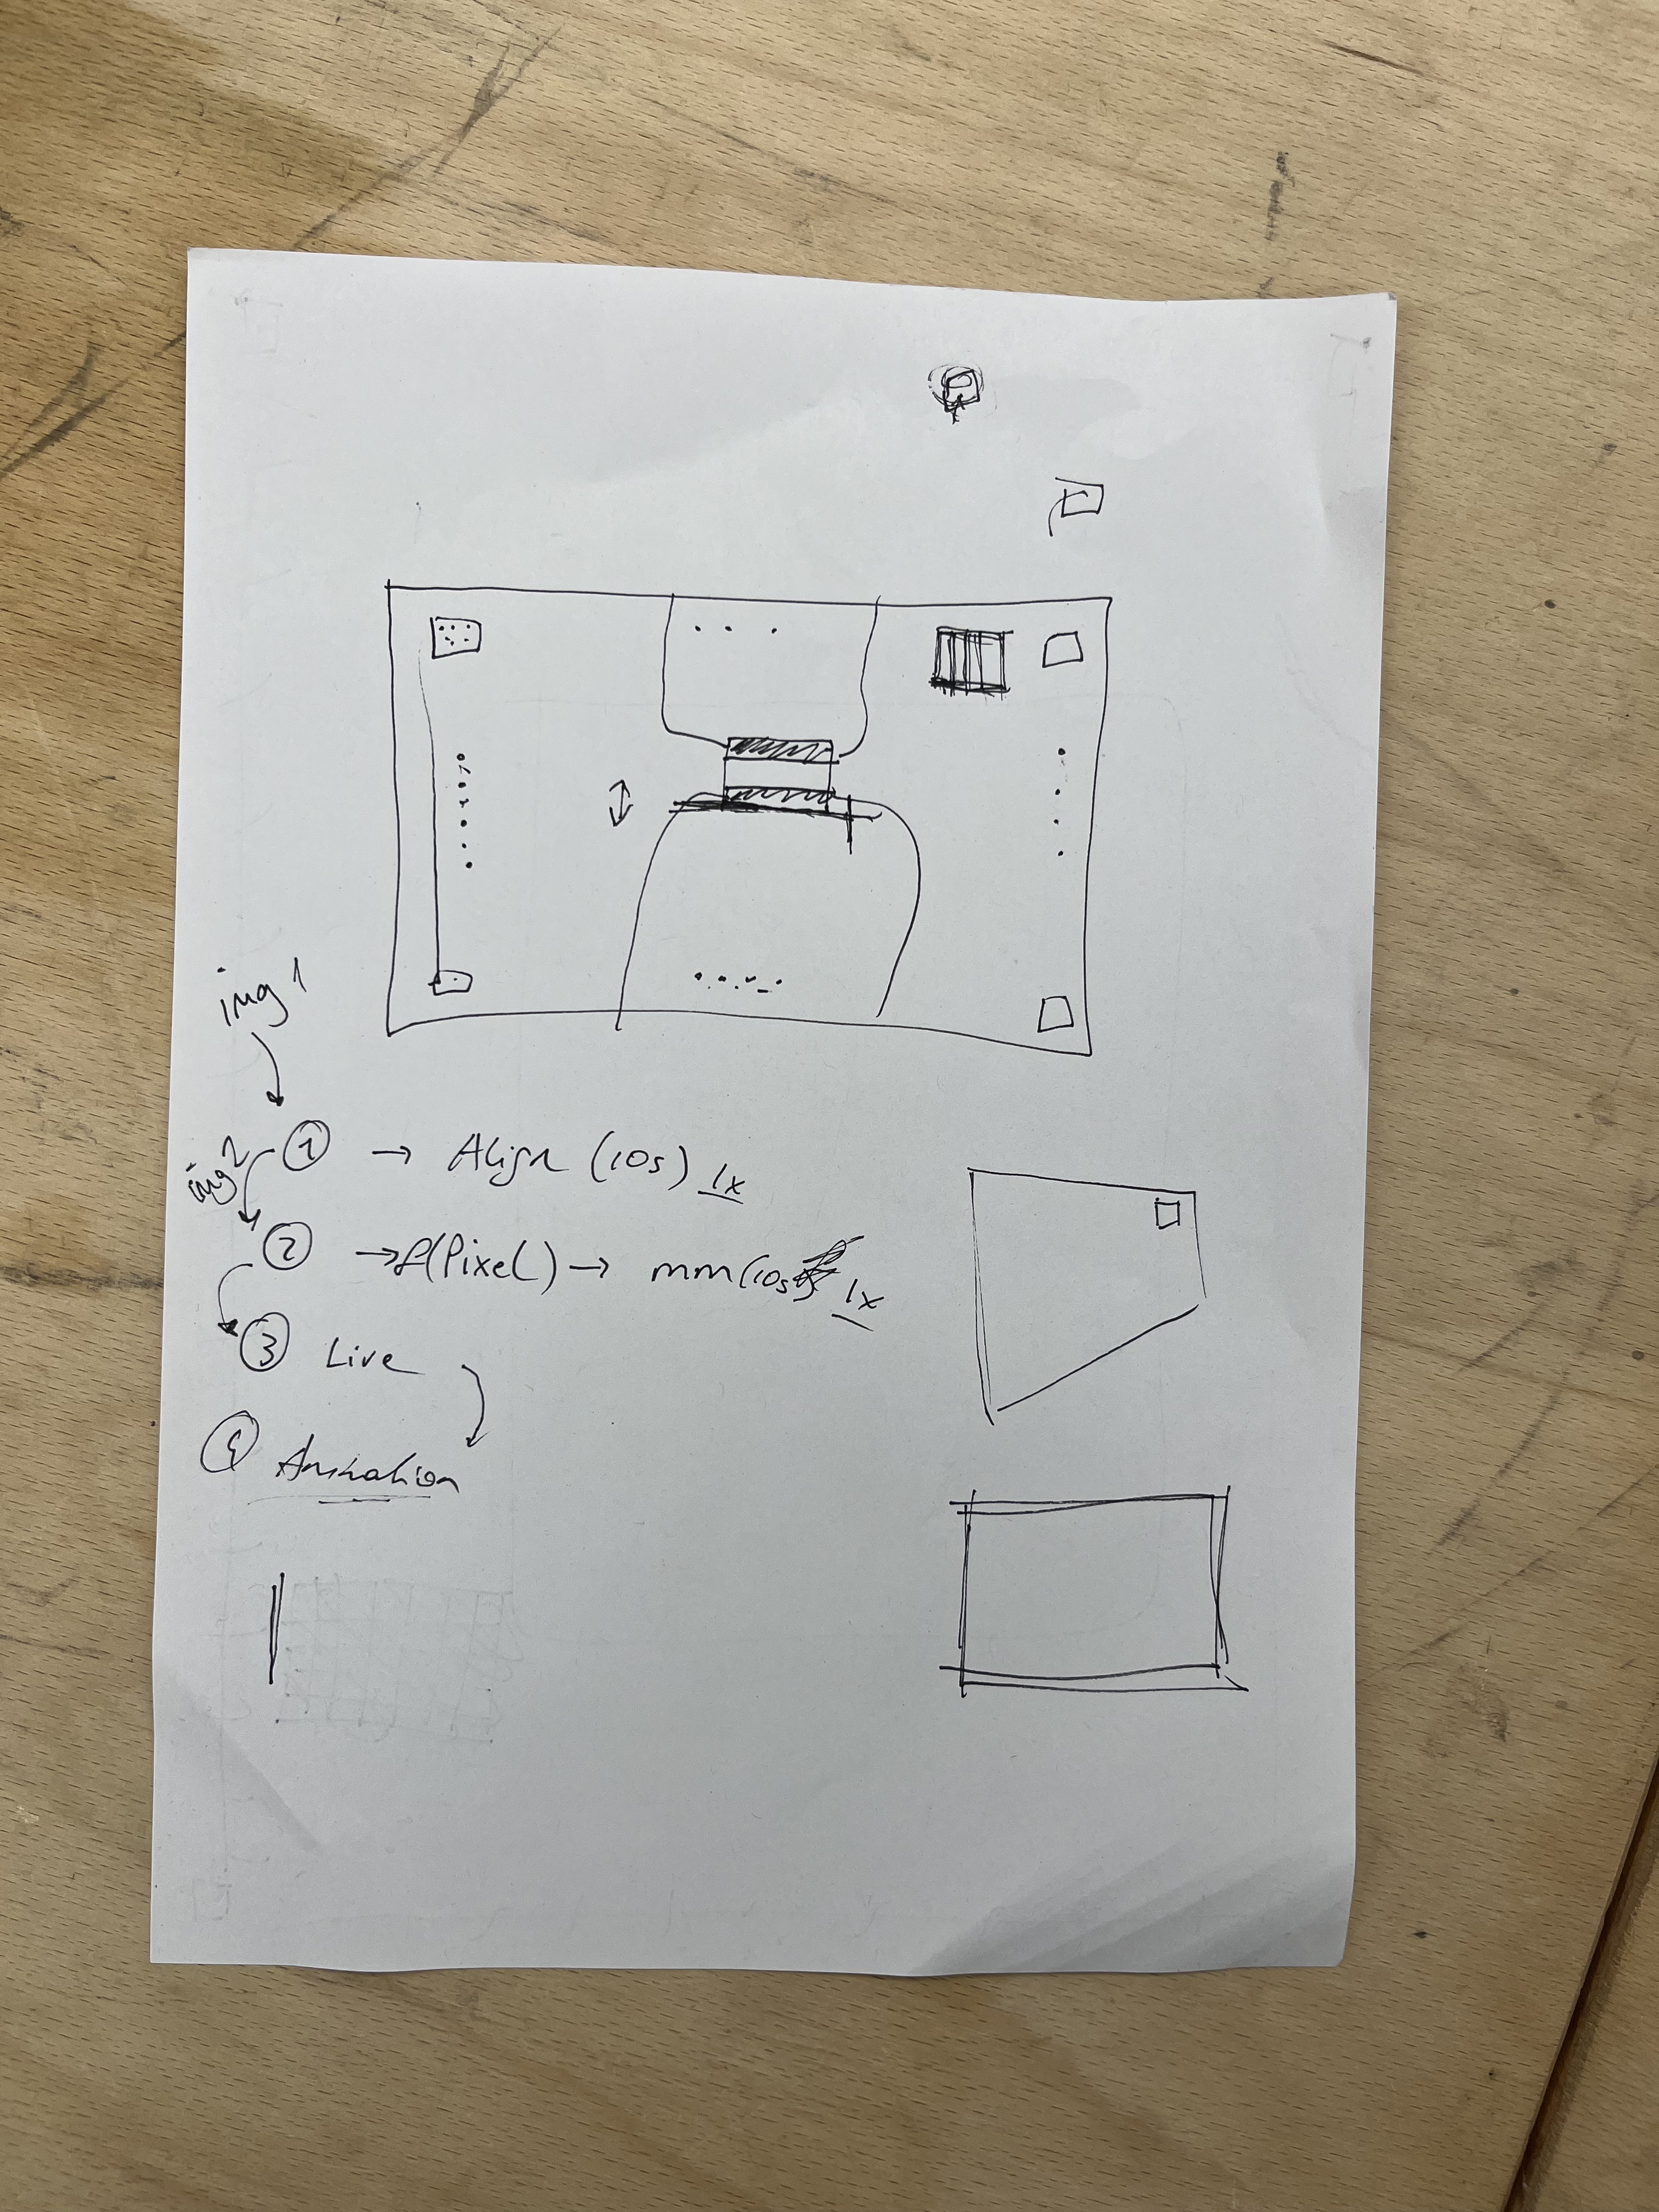 img 1
① → Align (10s) 1x
img 2
② → f(Pixel) → mm (10s) 1x
③ Live
④ Animation